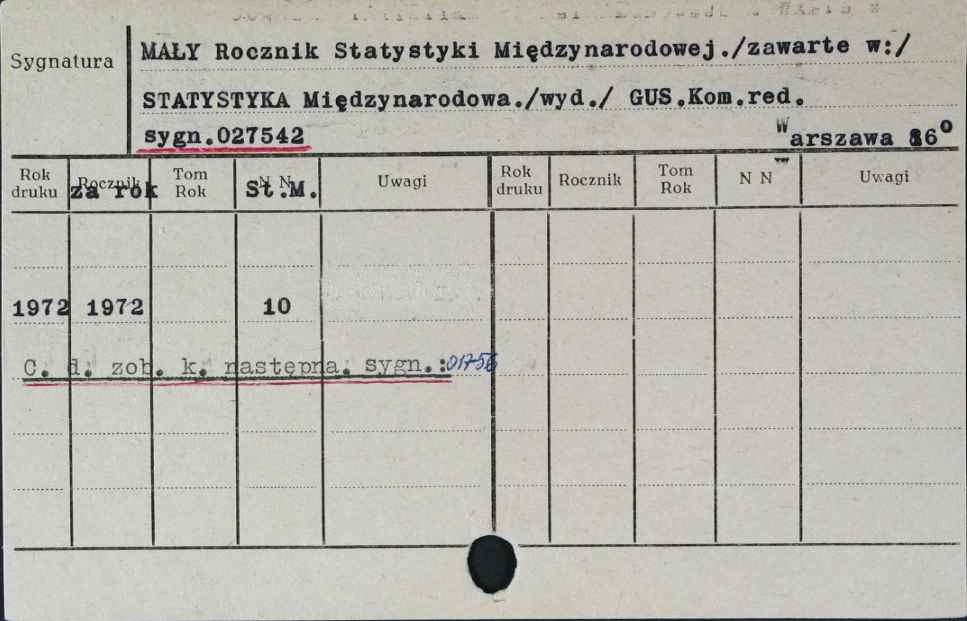 Sygnatura
MAŁY Rocznik Statystyki Międzynarodowej./zawarte w:/
STATYSTYKA Międzynarodowa./wyd./ GUS.Kom.red.
sygn.027542
Warszawa 86°
Rok druku Rocznik Tom Rok N N Uwagi Rok druku Rocznik Tom Rok N N Uwagi
za rok St.M.
1972 1972 10
C. d. zob. k. następna. sygn.:01756